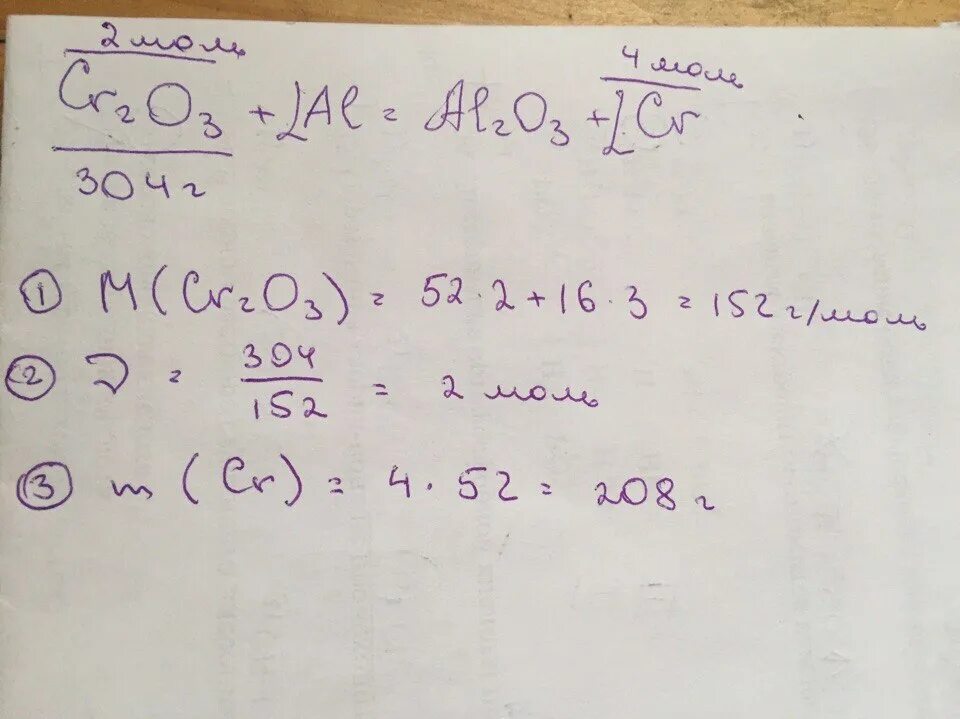 2 моль
4 моль
Cr₂O₃ + 2Al = Al₂O₃ + 2Cr
304 г
① M(Cr₂O₃) = 52·2 + 16·3 = 152 г/моль
② ν = 304/152 = 2 моль
③ m(Cr) = 4·52 = 208 г